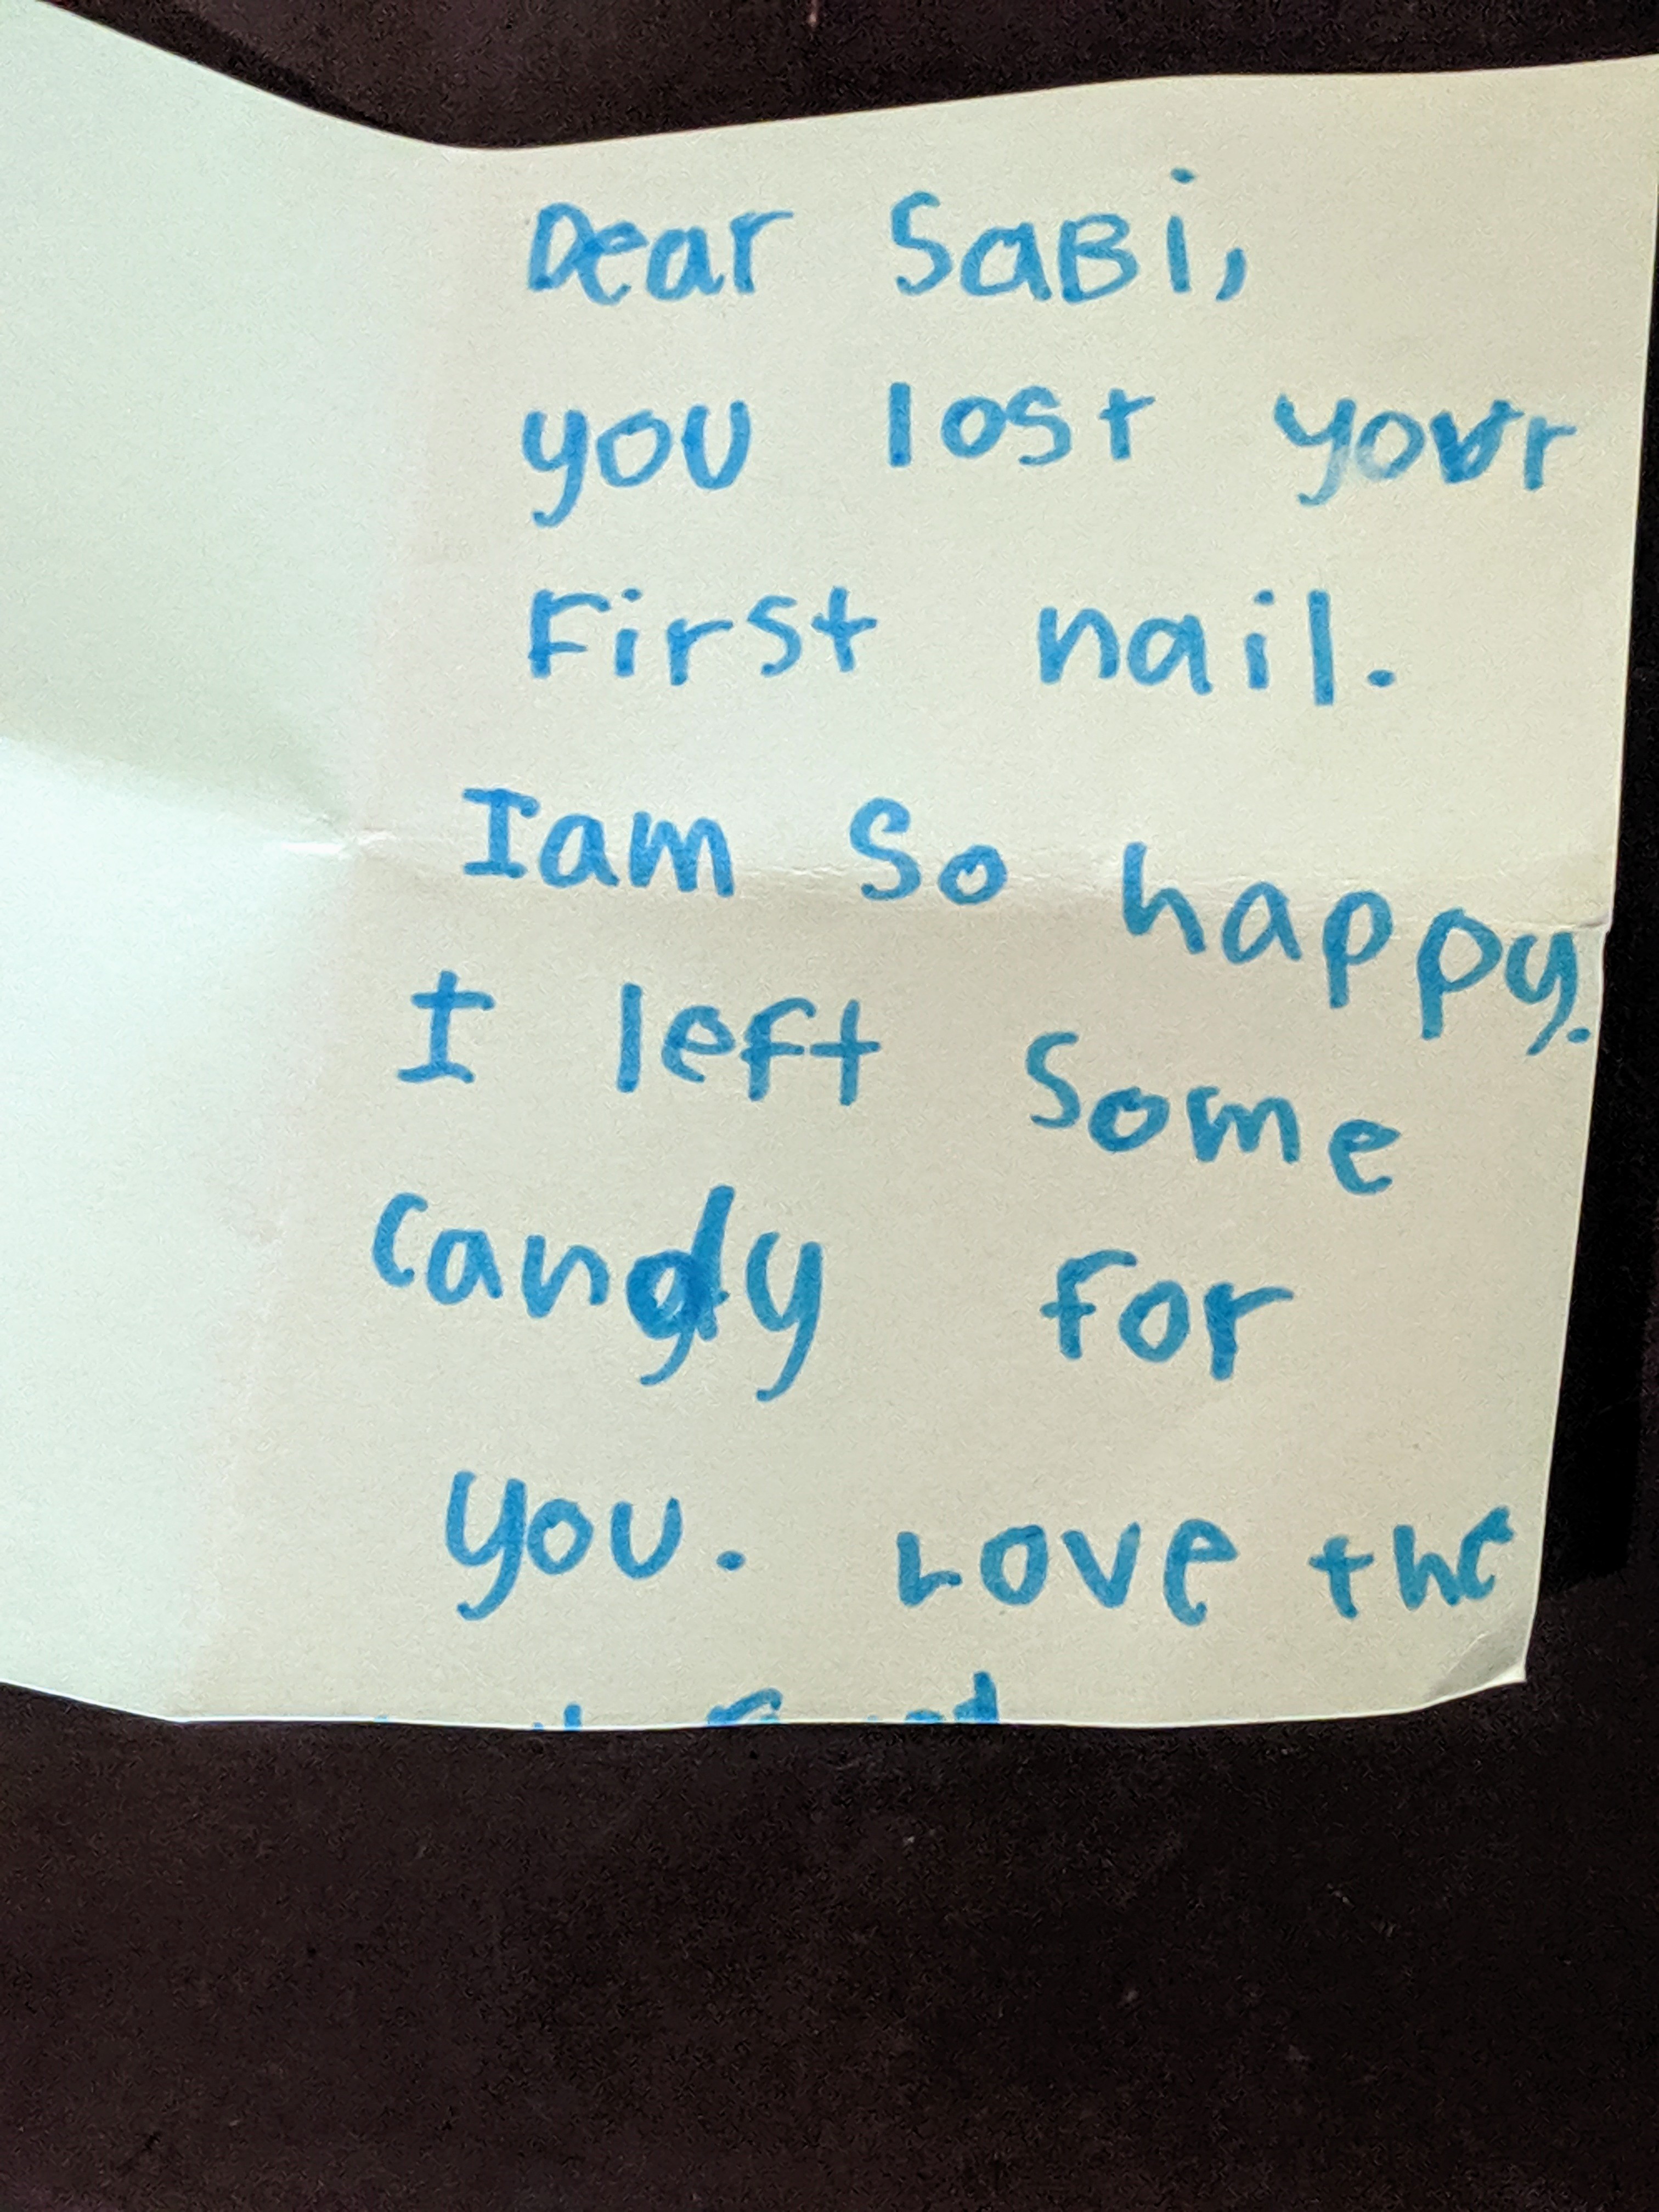 Dear SaBi,
you lost your
First nail.
I am So happy.
I left Some
Candy For
you. Love the